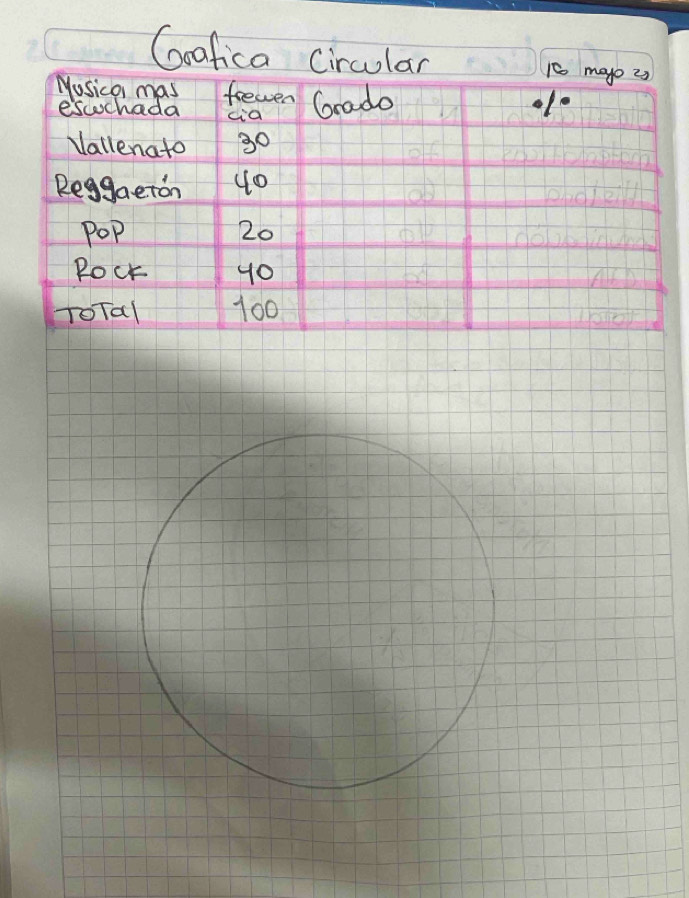 Grafica Circular
mayo
Musica mas escuchada frecuencia Grado %
Vallenato 30
Reggaetón 40
Pop 20
Rock 40
Total 100